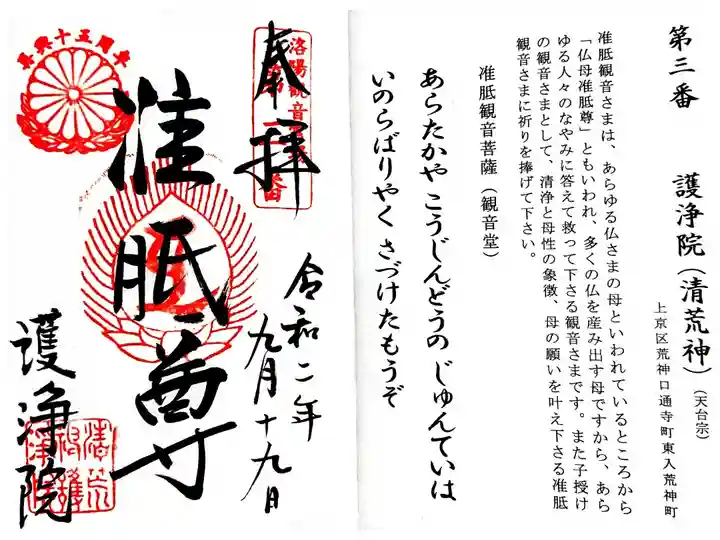 第三番 護浄院(清荒神)(天台宗)
上京区荒神口通寺町東入荒神町
准胝観音さまは、あらゆる仏さまの母といわれているところから
「仏母准胝尊」ともいわれ、多くの仏を産み出す母ですから、あら
ゆる人々のなやみに答えて救って下さる観音さまです。また子授け
の観音さまとして、清浄と母性の象徴、母の願いを叶え下さる准胝
観音さまに祈りを捧げて下さい。
准胝観音菩薩(観音堂)
あらたかや こうじんどうの じゅんていは
いのらばりやく さづけたもうぞ
奉拝
洛陽観音
番
令和二年
九月十九日
准胝尊
再興十五周年
護浄院
清荒
神護
浄院